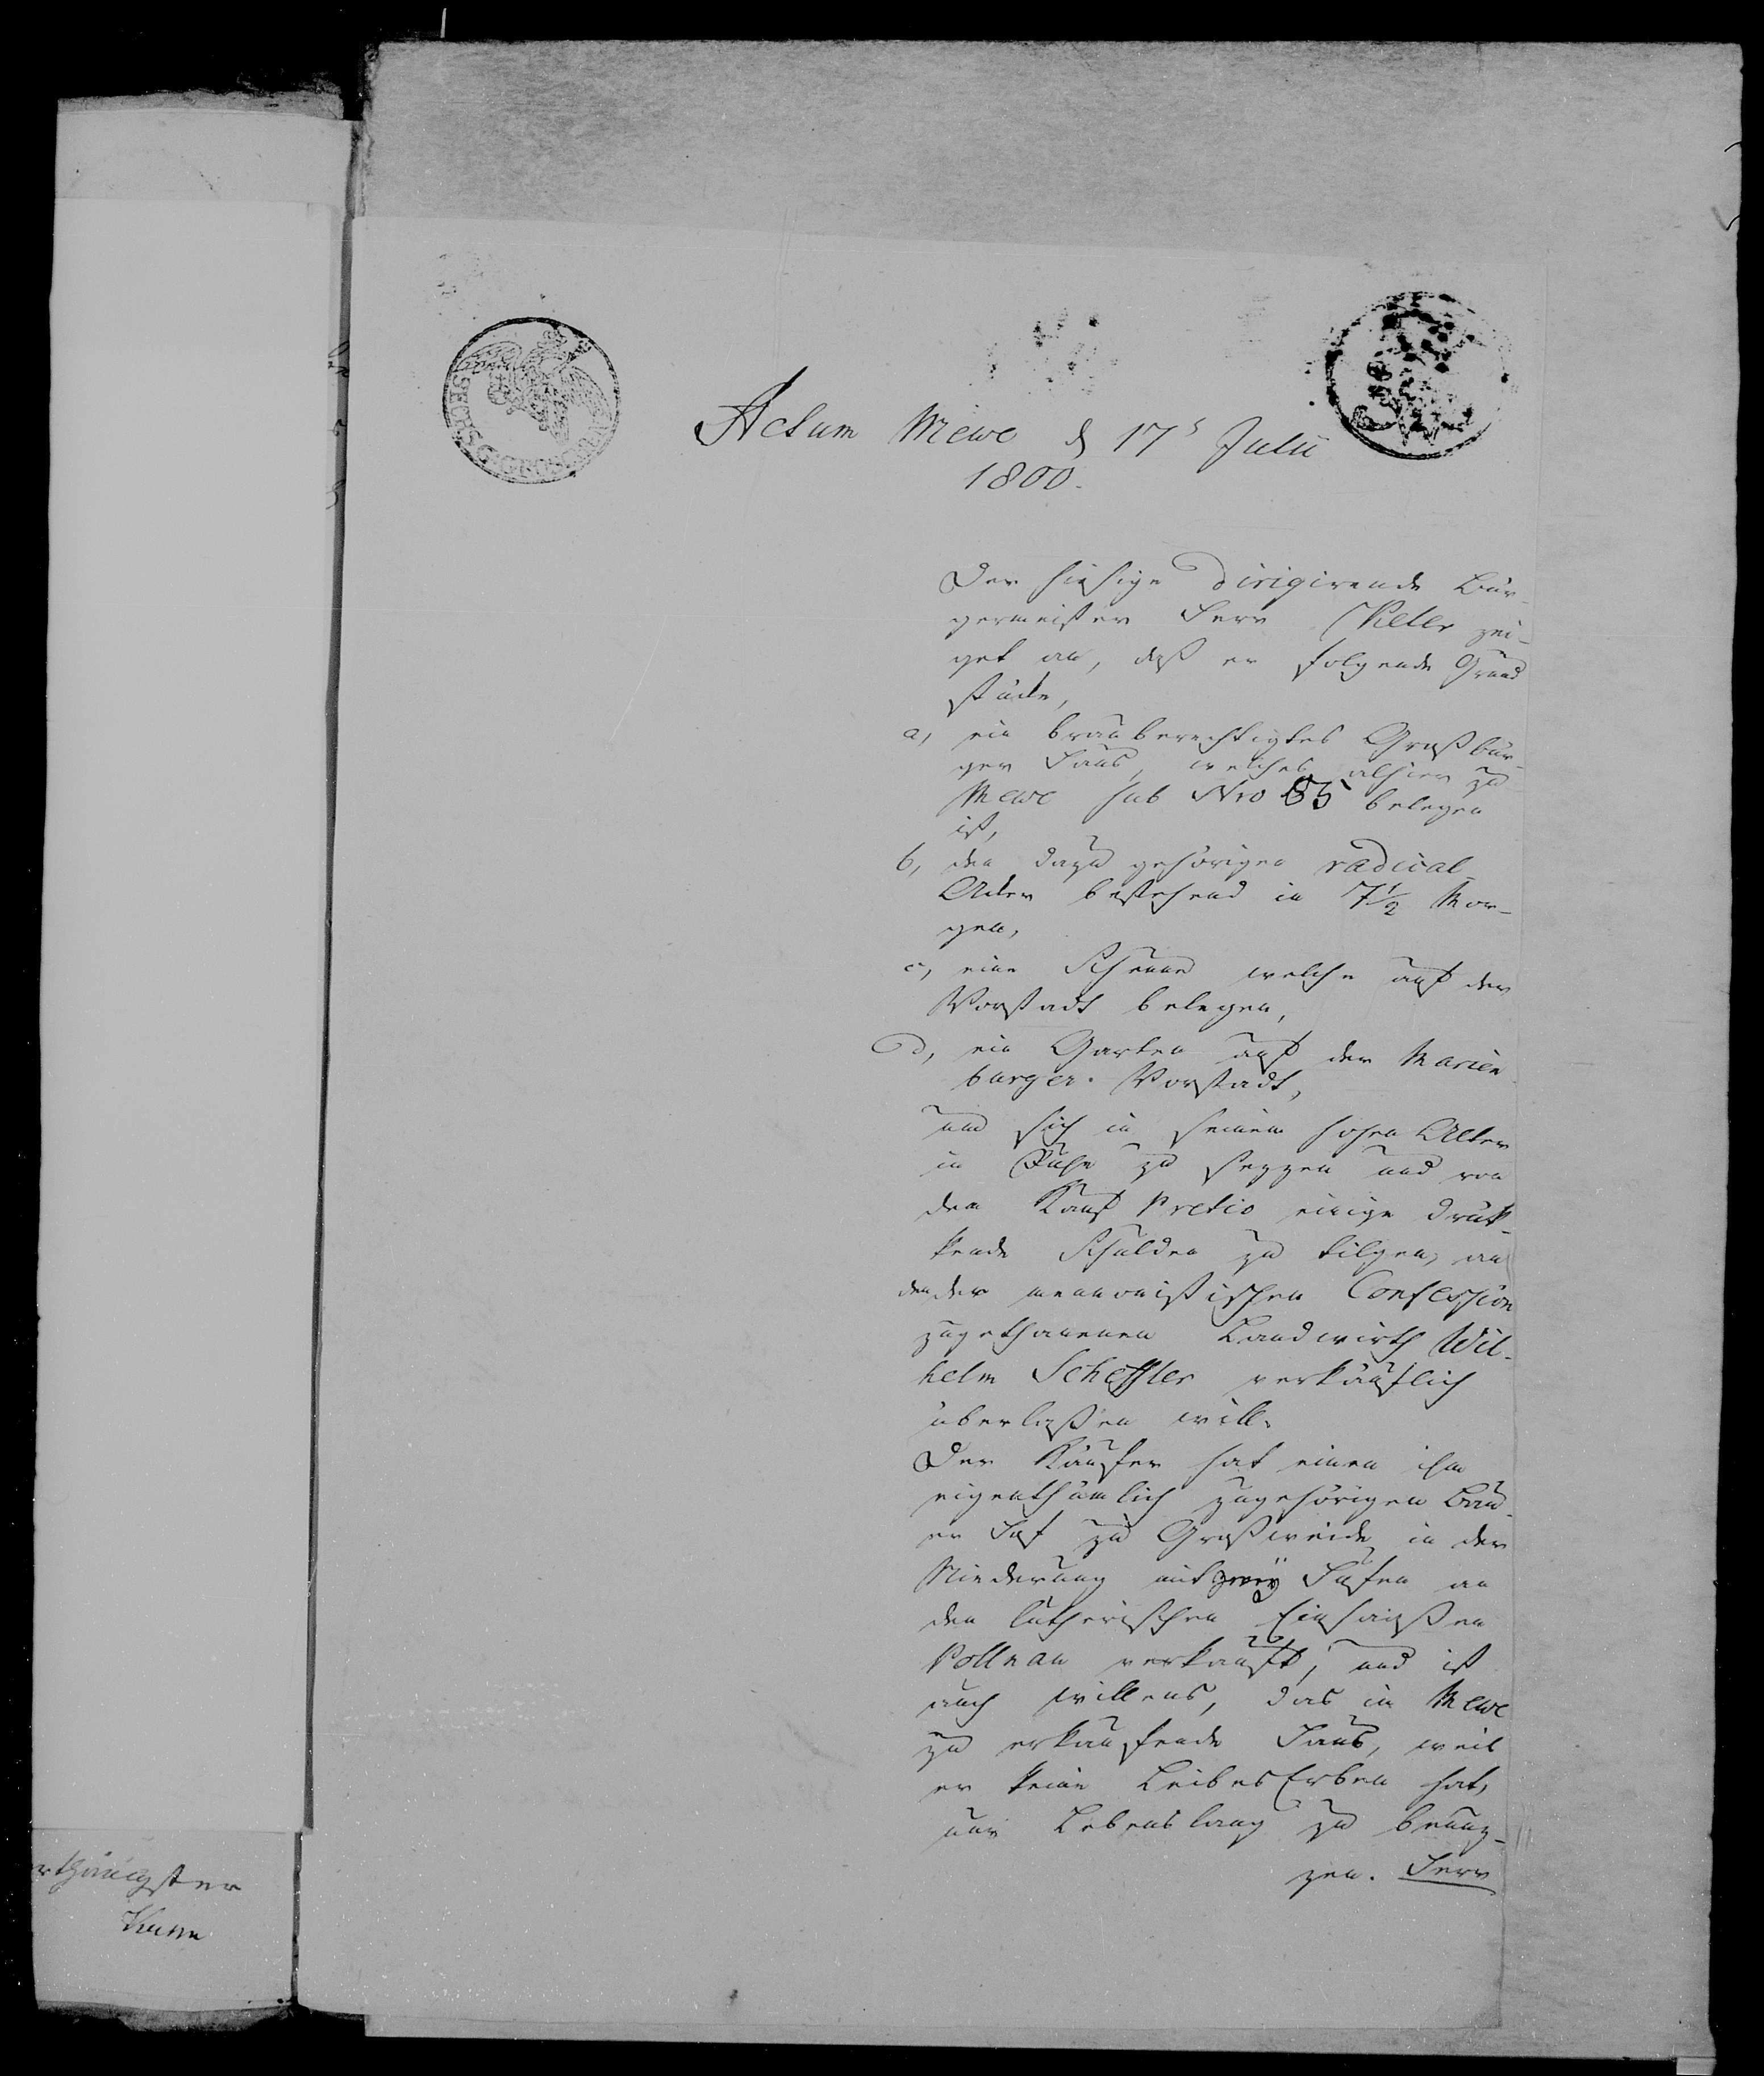 SECHS G. GROSCHEN
Actum Mewe d 17ᵗ Julii
1800.
Der hiesige dirigirende Bür-
germeister Herr Peter zei-
get an, daß er folgende Grund
stücke,
a, ein brauberechtigtes Großbür-
ger Haus, welches alhier zu
Mewe sub Nro 85 belegen
ist,
b, den dazu gehörigen radical-
Acker bestehend in 7½ Mor-
gen,
c, eine Scheune welche auf der
Vorstadt belegen,
d, ein Garten auf der Marien
burger Vorstadt,
um sich in seinem hohen Alter
in Ruhe zu sezzen und von
dem Kauf Pretio einige drük-
kende Schulden zu tilgen, an
den der mennonistischen Confession
zugethanenen Landwirth Wil-
helm Scheffler verkäuflich
überlaßen will.
Der Käufer hat einen ihm
eigenthümlich zugehörigen Bau-
er Hof zu Großweide in der
Niederung mit zwey Hufen an
den lutherischen Einsaaßen
Pollnau verkauft, und ist
auch willens, das in Mewe
zu erkaufende Haus, weil
er keine Leibes Erben hat,
nur Lebenslang zu benuz-
zen. Herr
rthänigster